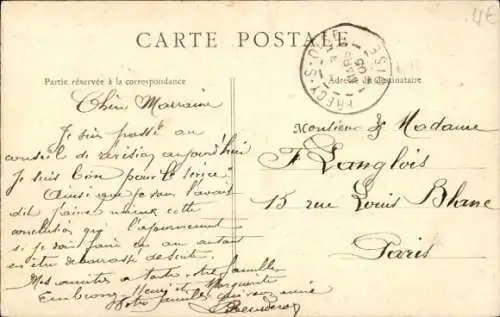 4€
CARTE POSTALE
Partie réservée à la correspondance
Adresse du destinataire
PRÉCY-S-O
OISE
Chère Marraine
Je suis passé au
conseil de révision aujourd'hui
Je suis bon pour le service
Ainsi que je vous l'avais
dit j'aime mieux cette
conclusion que l'ajournement
si je dois faire un an autant
en être débarrassé de suite.
Mes amitiés à toute votre famille
Embrassez Henri et Marguerite
Votre qui vous aime
Monsieur & Madame
F. Langlois
15 rue Louis Blanc
Paris